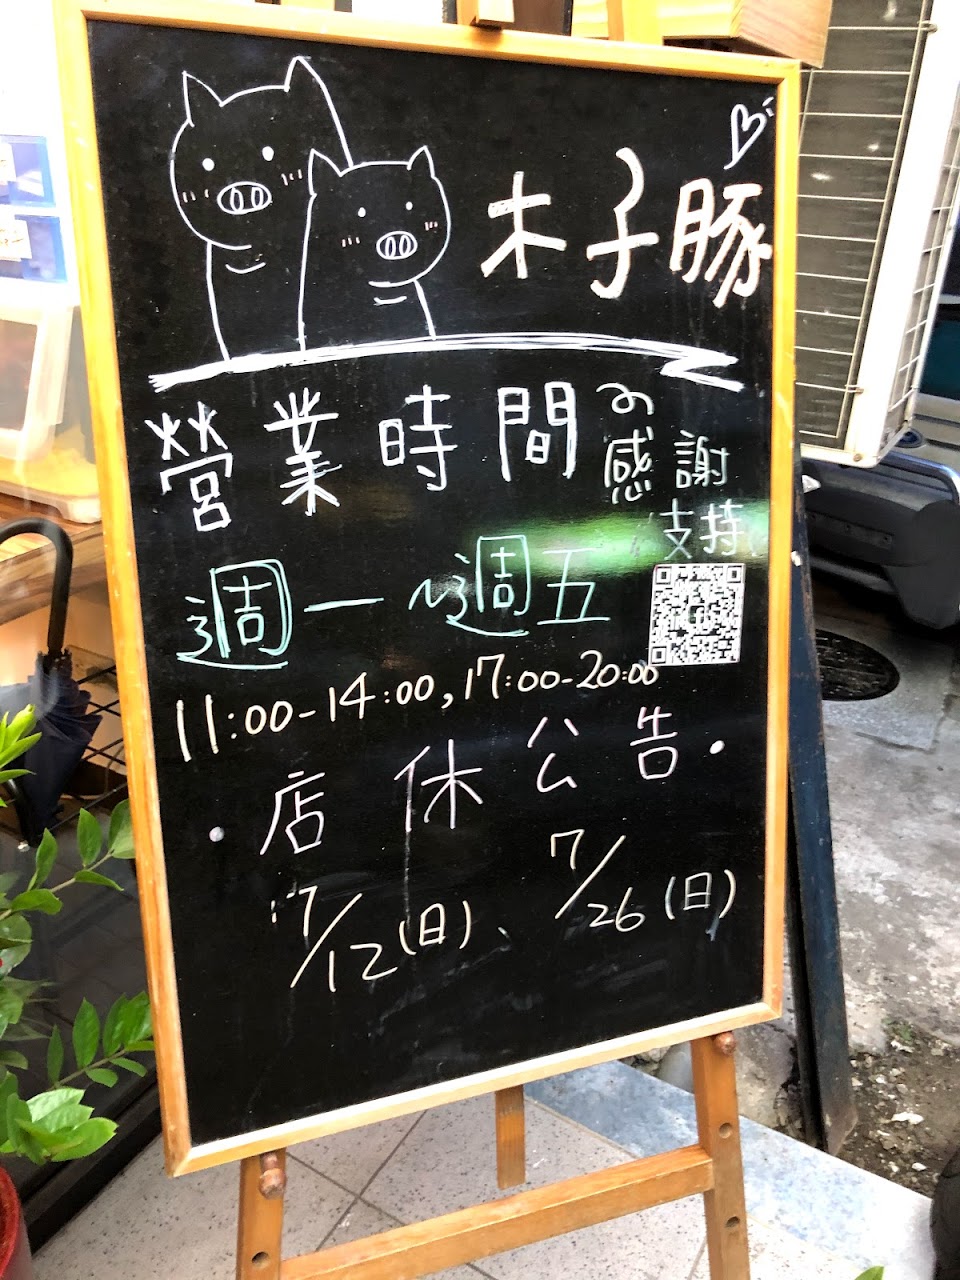 木子豚
營業時間
の感謝
支持
週一~週五
11:00-14:00,17:00-20:00
·店休公告·
:7/12(日)、7/26(日)